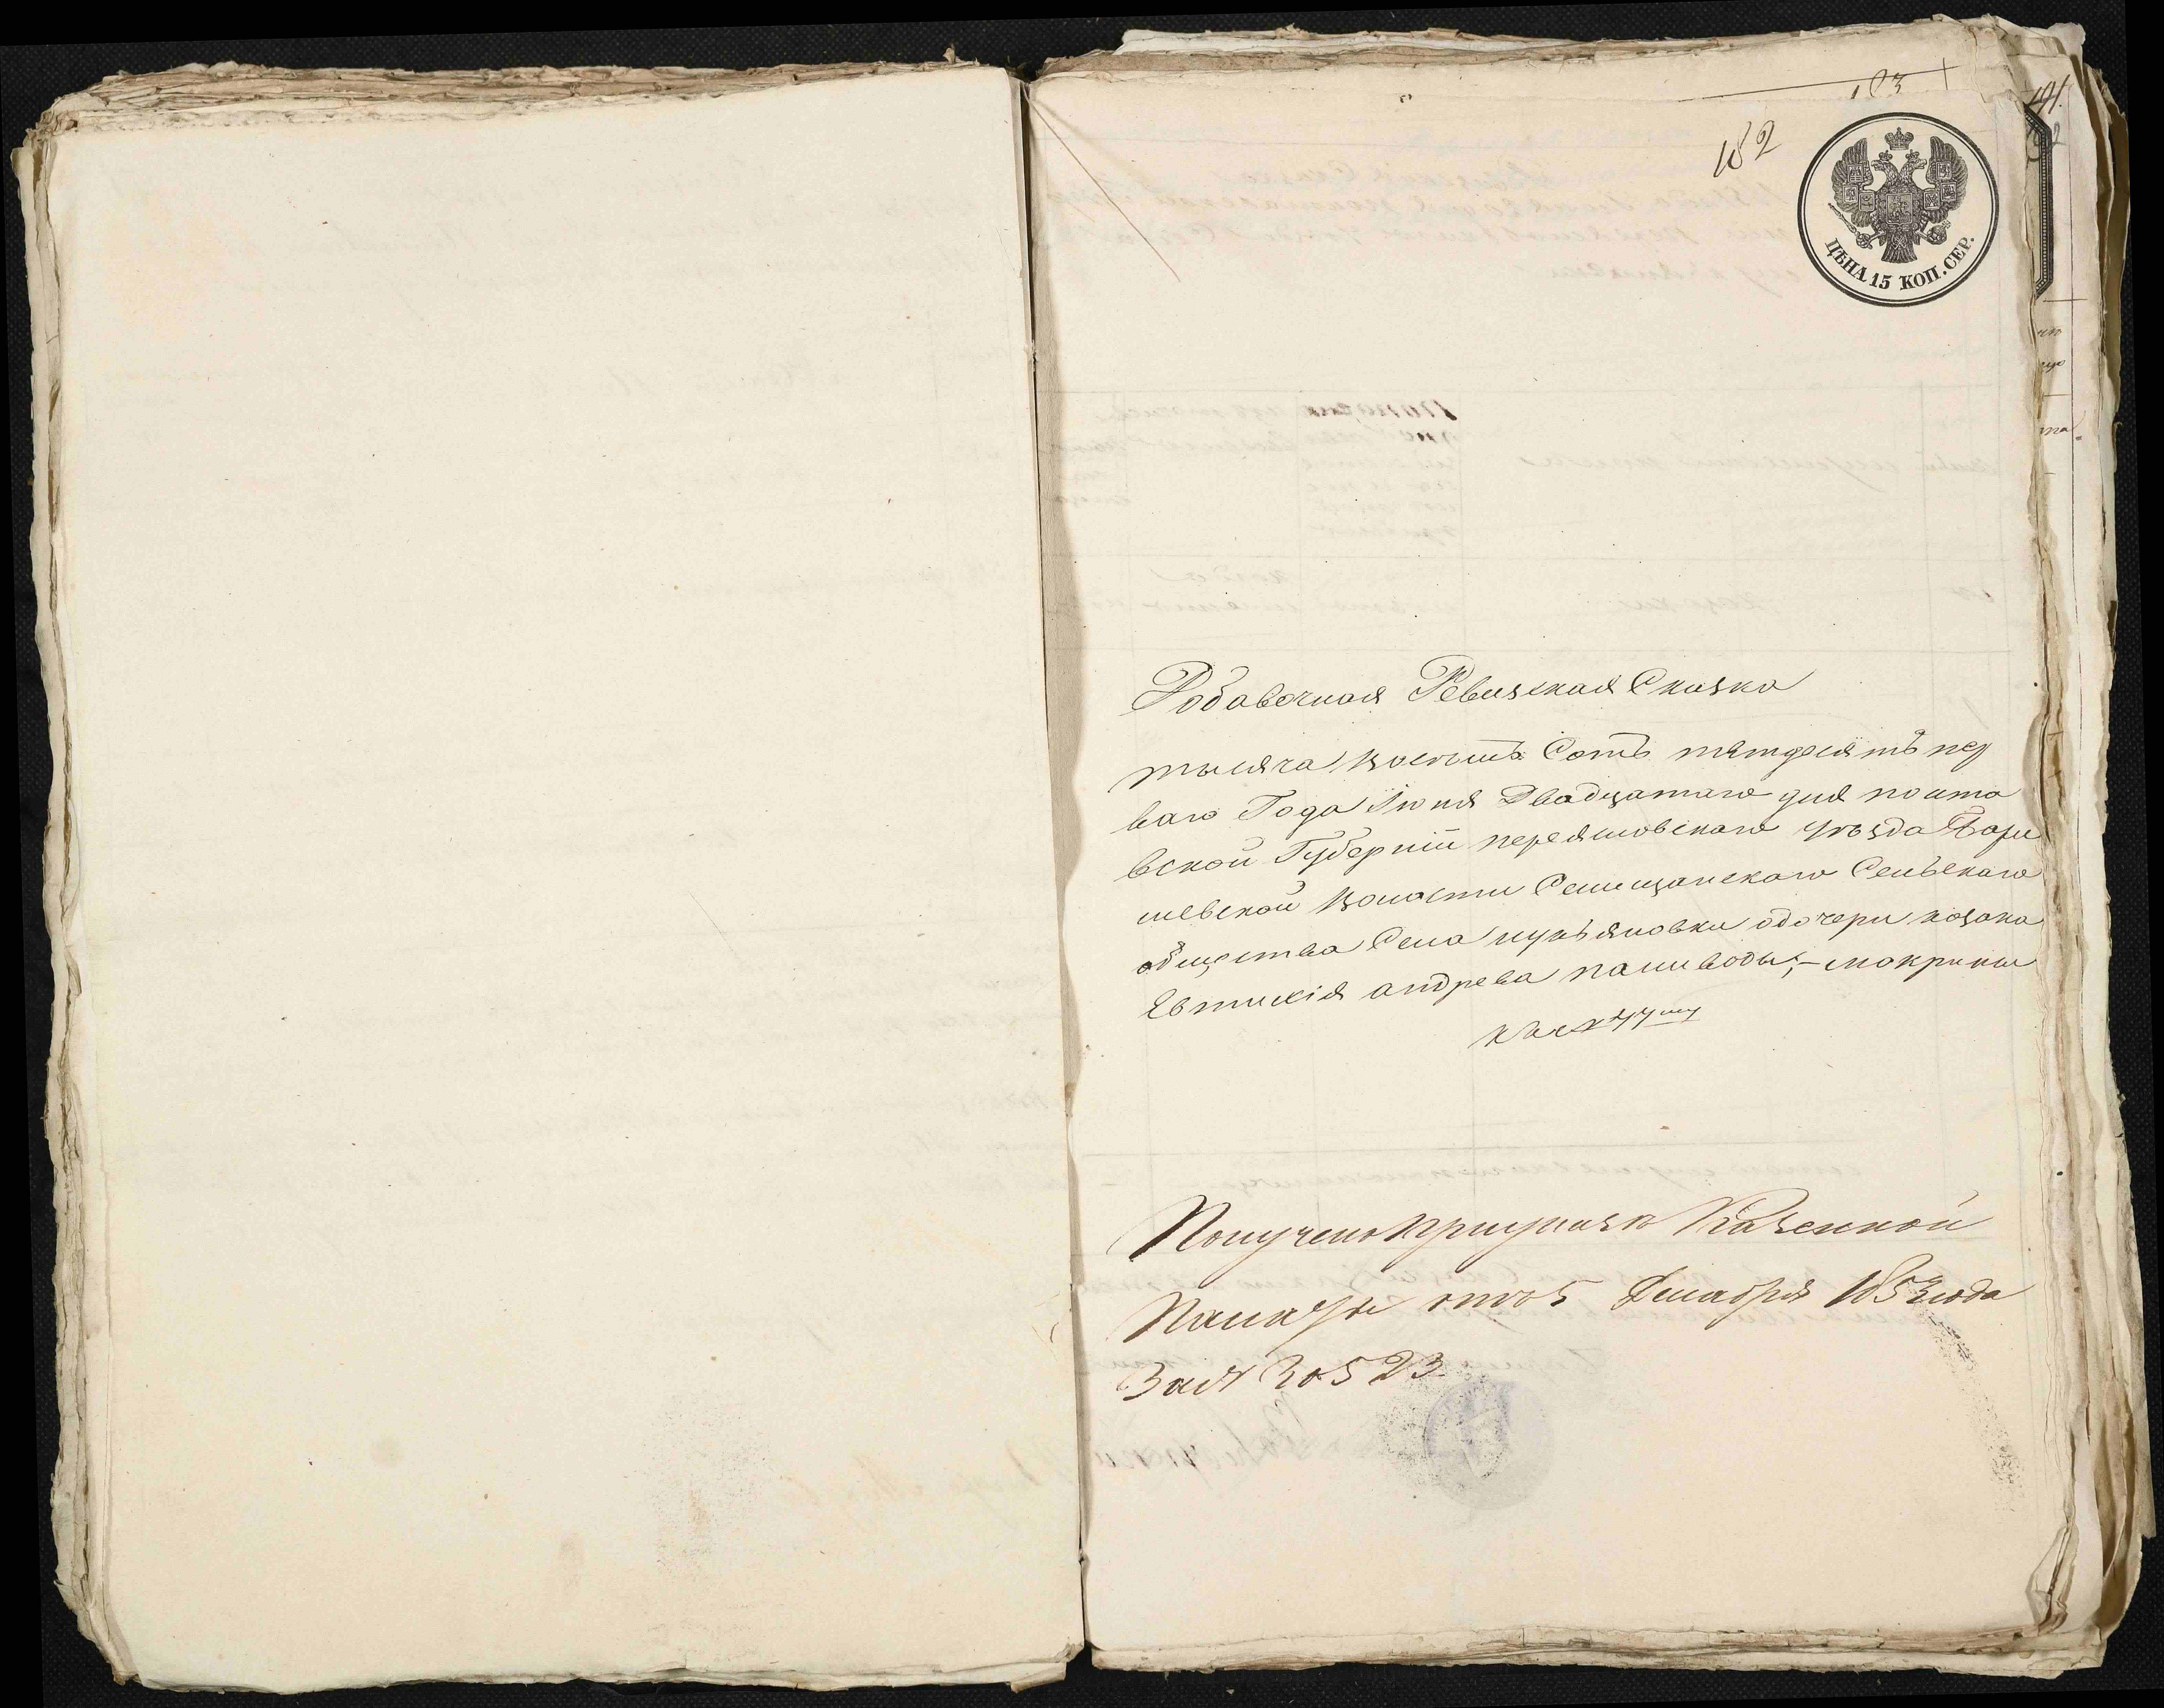 103
182
ЦѢНА 15 КОП. СЕР.
Добавочная Ревизская Сказка
тысяча восемь Сотъ пятдесятъ пер
ваго Года Іюня Двадцатаго дня полта
вской Губерніи переясловскаго уѣзда Бары
шевской волости Селищанскаго Сельскаго
общества Села лукъяновки одочери козака
Евтихія андреева паливоды, – мокрины
Получено приуказѣ Казенной
Палаты отъ 5 Декабря 1853 года
За № 30523